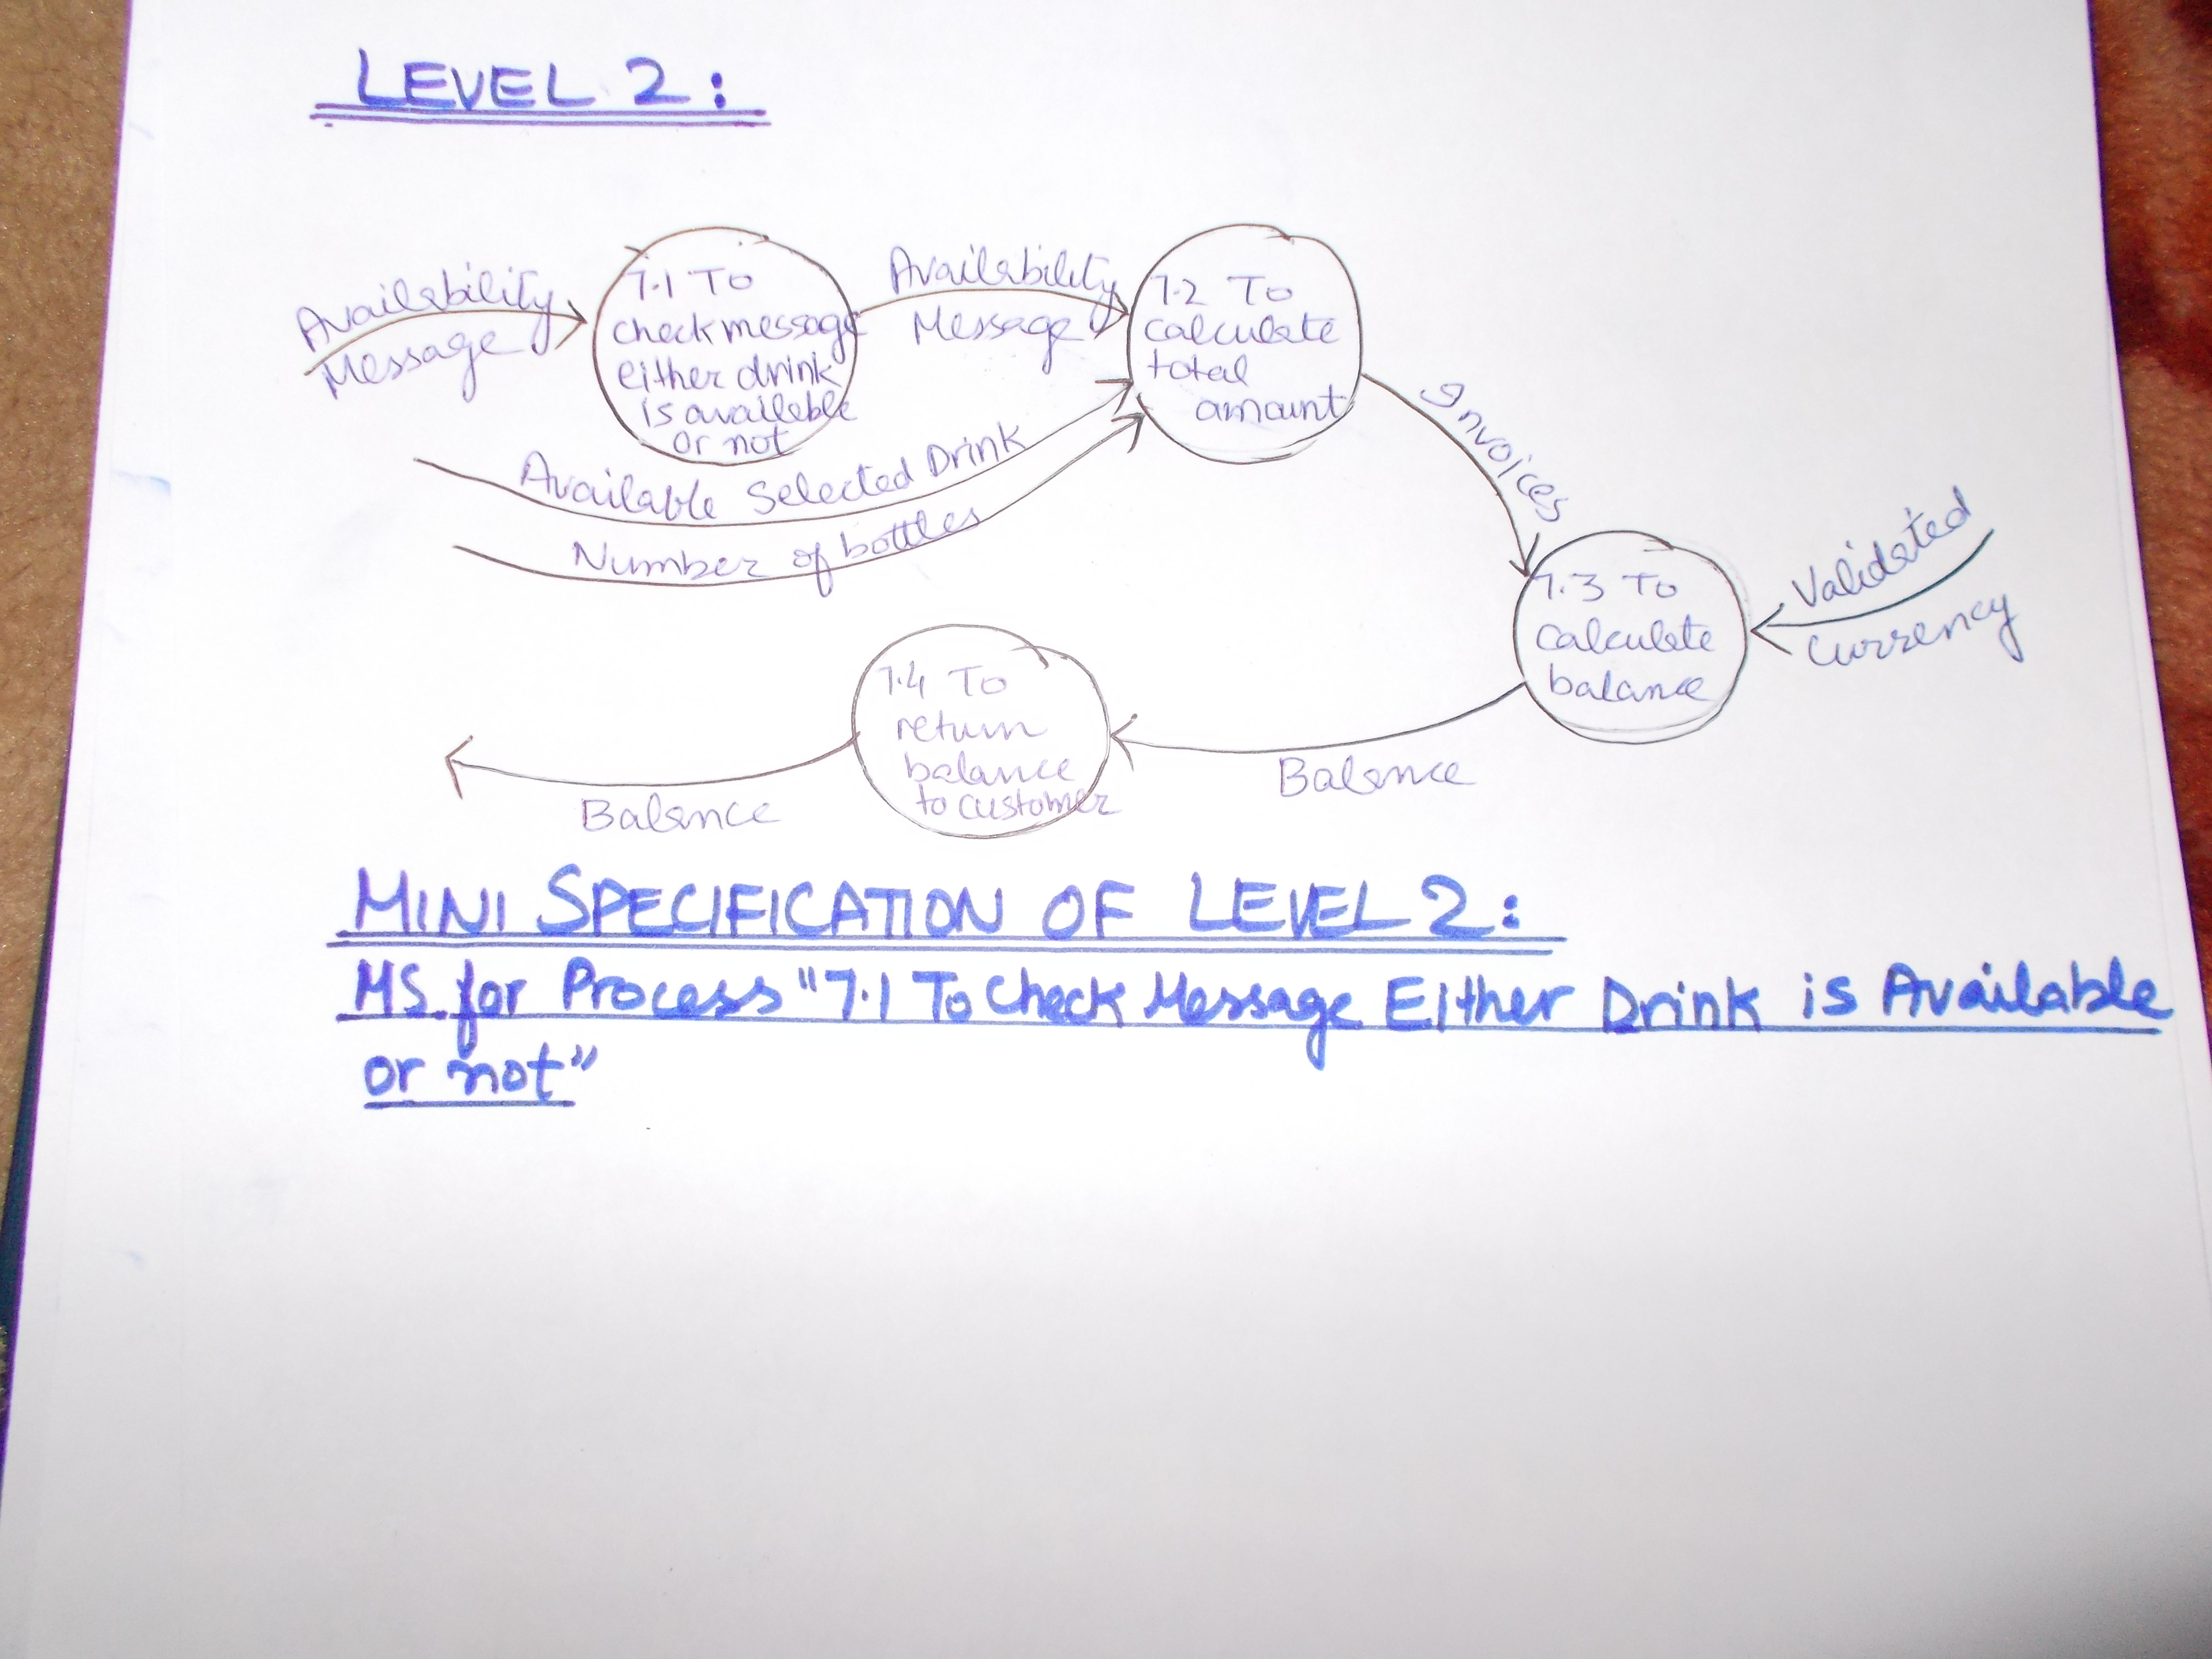 LEVEL 2:
Availability
Message
7.1 To
check message
either drink
is available
or not
Availability
Message
7.2 To
calculate
total
amount
Available Selected Drink
Number of bottles
Invoices
7.3 To
calculate
balance
Validated
Currency
Balance
7.4 To
return
balance
to customer
Balance
MINI SPECIFICATION OF LEVEL 2:
MS for Process "7.1 To Check Message Either Drink is Available
or not"